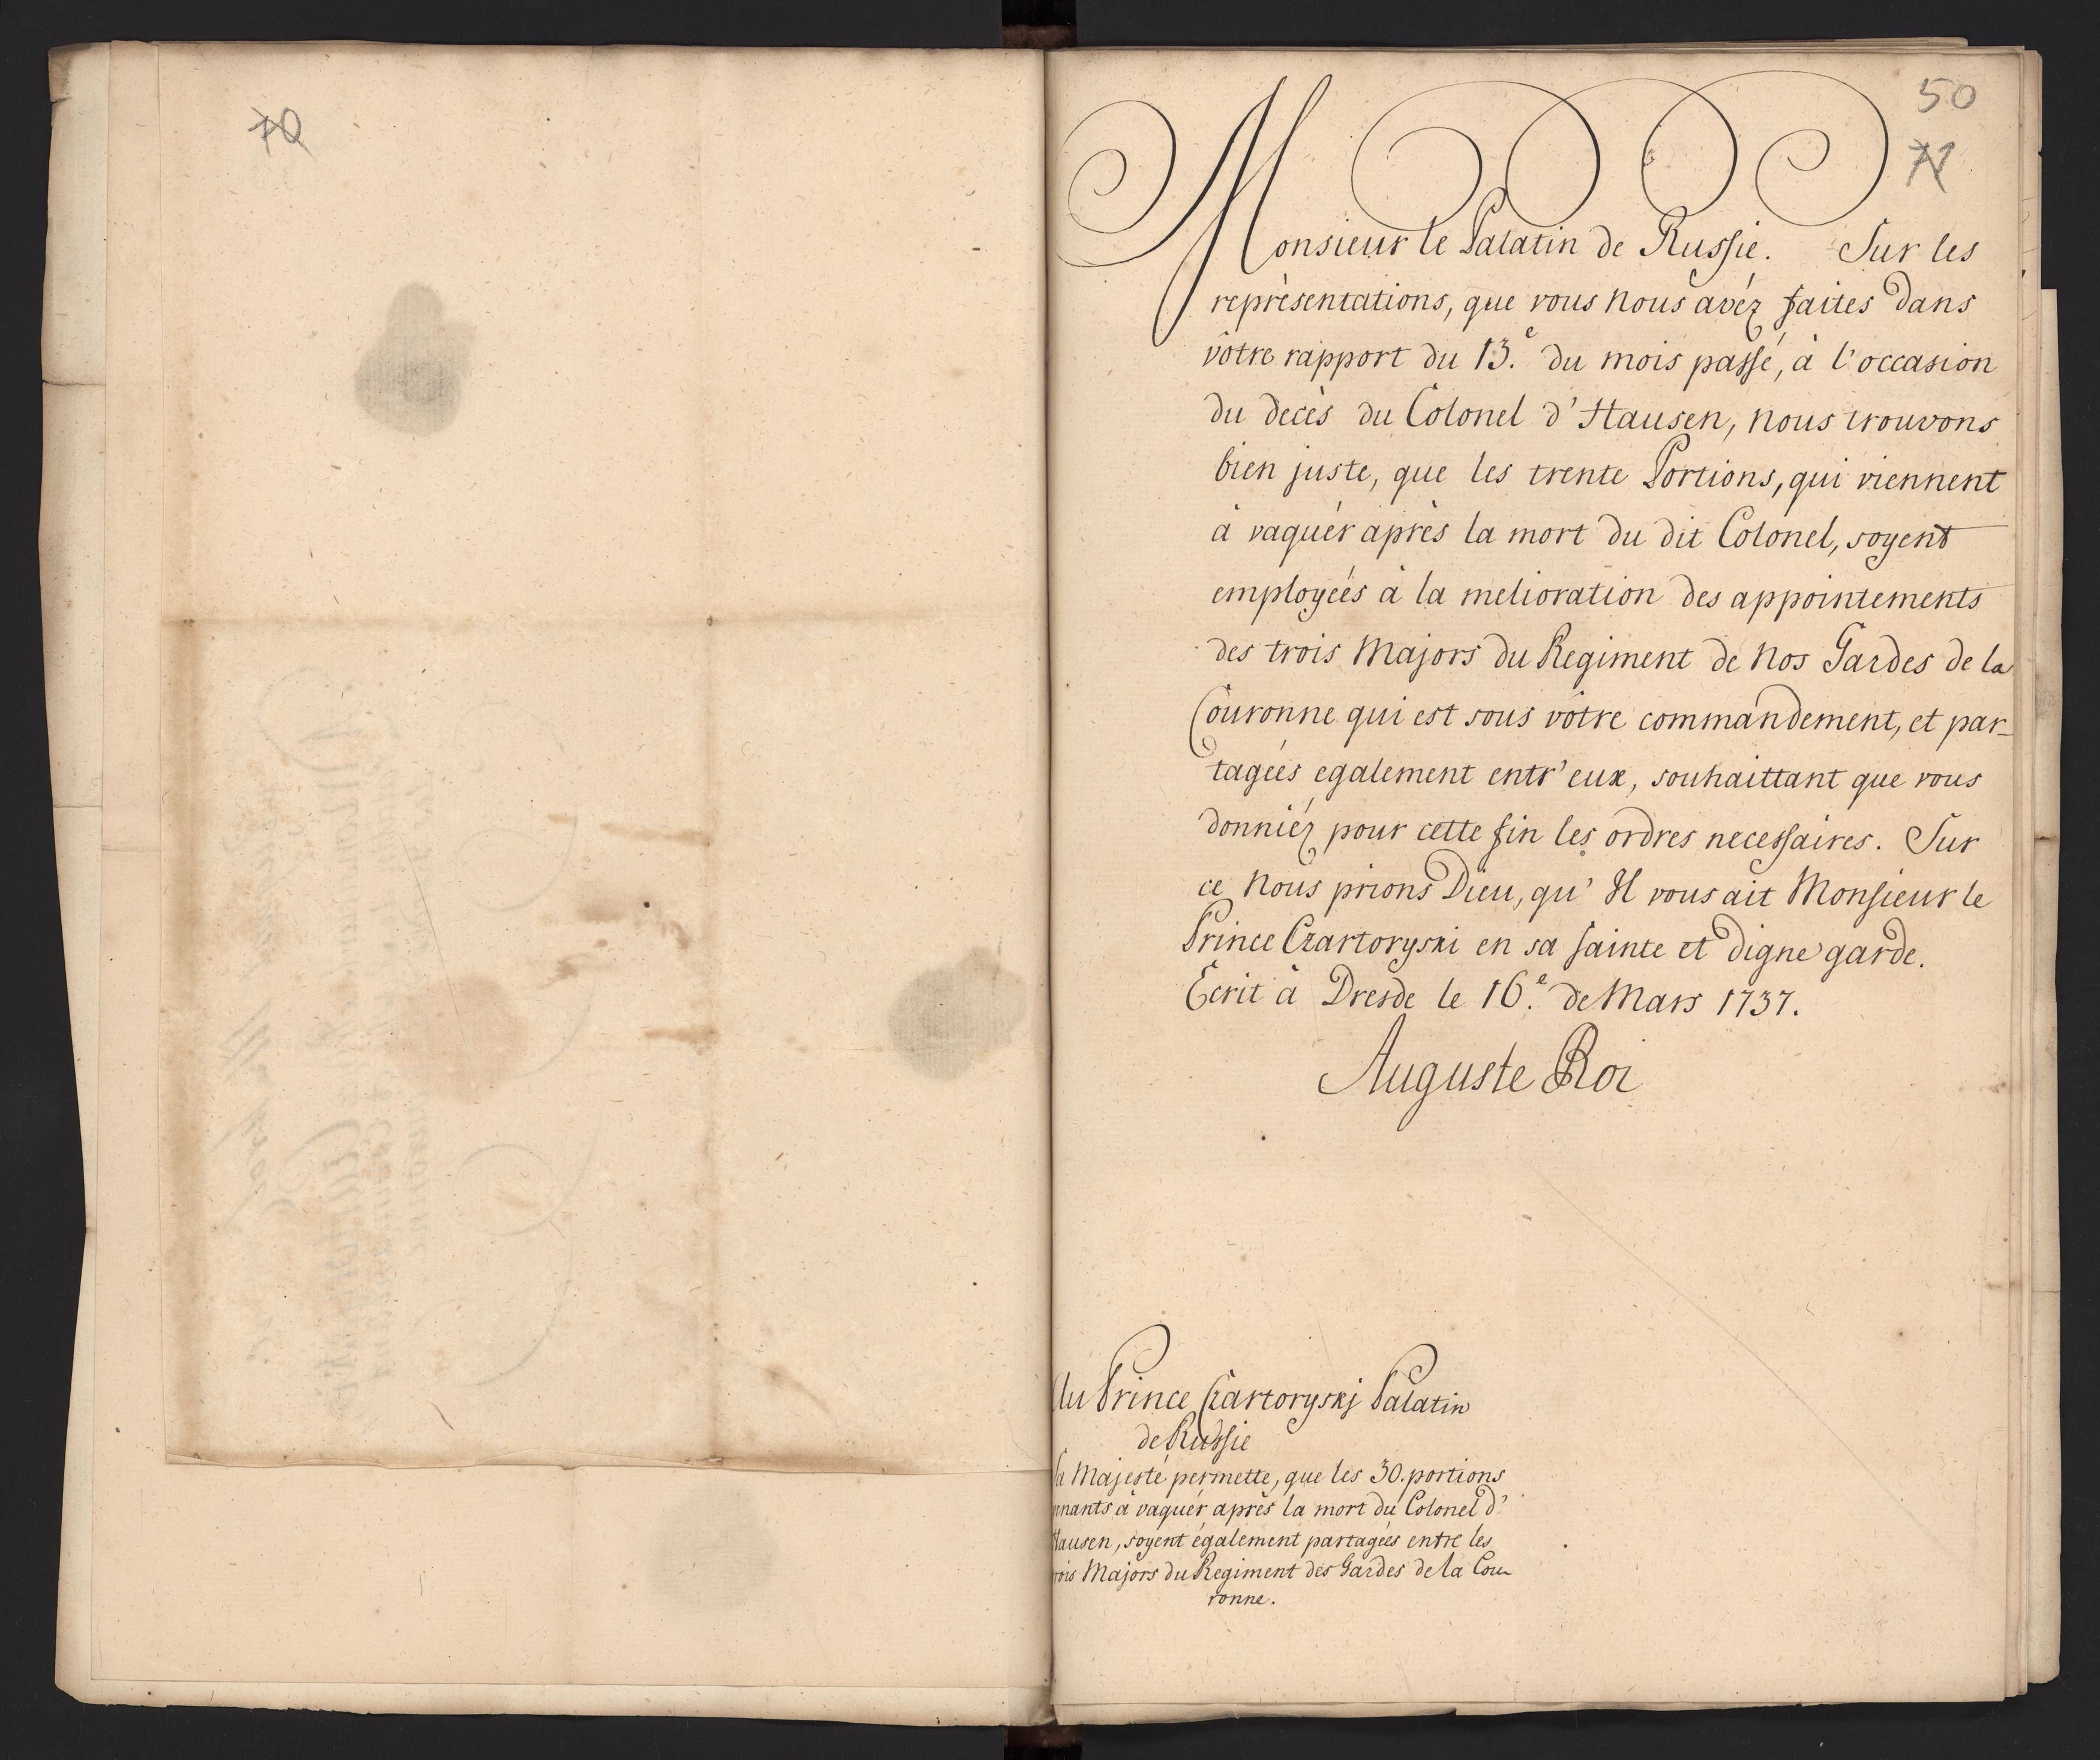 70
50
71
Monsieur le Palatin de Russie. Sur les
représentations, que vous Nous avéz faites dans
vôtre rapport du 13.e du mois passé, à l'occasion
du decès du Colonel d'Hausen, Nous trouvons
bien juste, que les trente Portions, qui viennent
à vaquér après la mort du dit Colonel, soyent
employées à la melioration des appointements
des trois Majors du Regiment de Nos Gardes de la
Couronne qui est sous vôtre commandement, et par-
tagées egalement entr'eux, souhaittant que vous
donniéz pour cette fin les ordres necessaires. Sur
ce Nous prions Dieu, qu' Il vous ait Monsieur le
Prince Czartoryski en sa sainte et digne garde.
Ecrit à Dresde le 16.e de Mars 1737.
Auguste Roi
Au Prince Czartoryskj Palatin
de Russie
Sa Majesté permette, que les 30. portions
nants à vaquér après la mort du Colonel d'
Hausen, soyent également partagées entre les
trois Majors du Regiment des Gardes de la Cou
ronne.